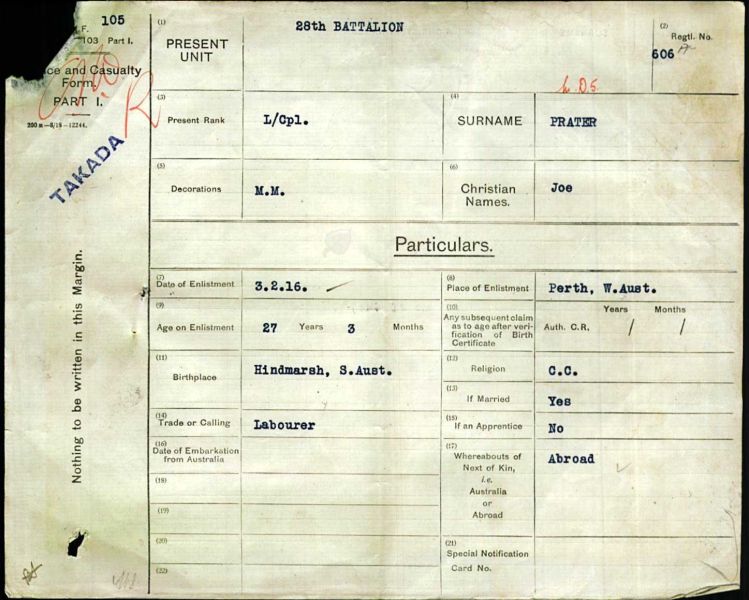 105
F.
103 Part I.
ce and Casualty
Form.
PART I.
200 m—8/18—12244.
R
TAKADA
Nothing to be written in this Margin.
(1)
PRESENT
UNIT
28th BATTALION
(2)
Regtl. No.
606 A
(3)
Present Rank
L/Cpl.
(4)
SURNAME
PRATER
(5)
Decorations
M.M.
(6)
Christian
Names.
Joe
Particulars.
(7)
Date of Enlistment
3.2.16.
(8)
Place of Enlistment
Perth, W.Aust.
(9)
Age on Enlistment
27 Years 3 Months
(10)
Any subsequent claim
as to age after veri-
fication of Birth
Certificate
Years Months
Auth. C.R. / /
(11)
Birthplace
Hindmarsh, S.Aust.
(12)
Religion
C.C.
(13)
If Married
Yes
(14)
Trade or Calling
Labourer
(15)
If an Apprentice
No
(16)
Date of Embarkation
from Australia
(17)
Whereabouts of
Next of Kin,
i.e.
Australia
or
Abroad
Abroad
(18)
(19)
(20)
(21)
Special Notification
Card No.
(22)